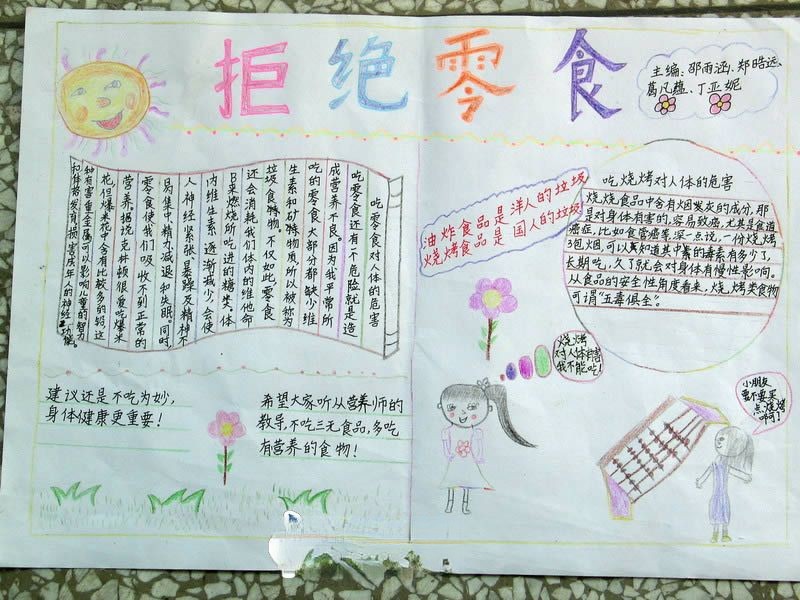 拒绝零食
主编:邵雨涵、郑晧远、
葛凡蕴、丁亚妮
吃零食对人体的危害
吃零食还有一个危险就是造
成营养不良。因为我平常所
吃的零食大部分都缺少维
生素和矿物质所以被称为
垃圾食物,不仅如此,零食
还会消耗我们体内的维他命
B来燃烧所吃进的糖类。体
内维生素逐渐减少,会使
人神经紧张暴躁及精神不
易集中,精力减退和失眠,同时,
零食使我们吸收不到正常的
营养,据说克林顿很爱吃爆米
花,但爆米花中含有比较多的铅,这
种有害重金属可以影响儿童的智力
和体格发育,损害成年人的神经功能。
油炸食品是洋人的垃圾
烧烤食品是国人的垃圾
吃烧烤对人体的危害
烧烤食品中含有烟熏灰的成分,那
是对身体有害的,容易致癌,尤其是食道
癌症,比如食管癌等,深一点说,一份烧烤
3包烟,可以知道其中的毒素有多少了,
长期吃,久了就会对身体有慢性影响。
从食品的安全性角度看来,烧烤类食物
可谓“五毒俱全”。
建议还是不吃为妙,
身体健康更重要!
希望大家听从营养师的
教导,不吃三无食品,多吃
有营养的食物!
烧烤
对人体有害
我不能吃!
小朋友
要不要买
点烧烤
啊!